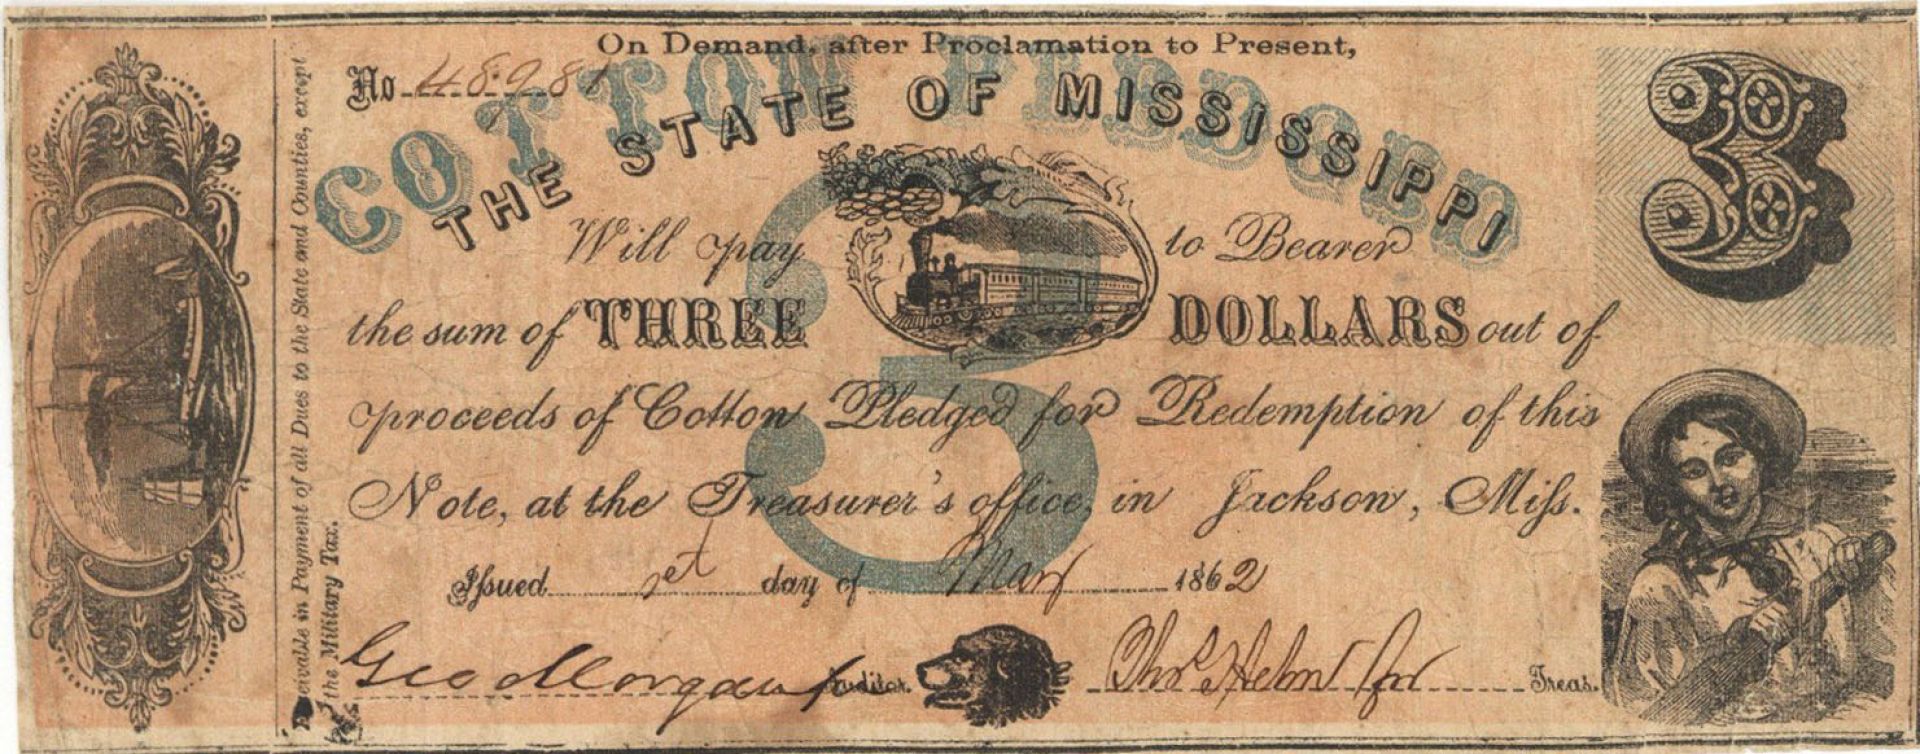 On Demand, after Proclamation to Present,
No 48,981
COTTON PLEDGED
THE STATE OF MISSISSIPPI
3
Will pay to Bearer
the sum of THREE DOLLARS out of
proceeds of Cotton Pledged for Redemption of this
Note, at the Treasurer's office, in Jackson, Miss.
Issued 1st day of May 1862
Geo Morgan f Auditor.
Thos Helm for Treas.
3
Receivable in Payment of all Dues to the State and Counties, except
the Military Tax.